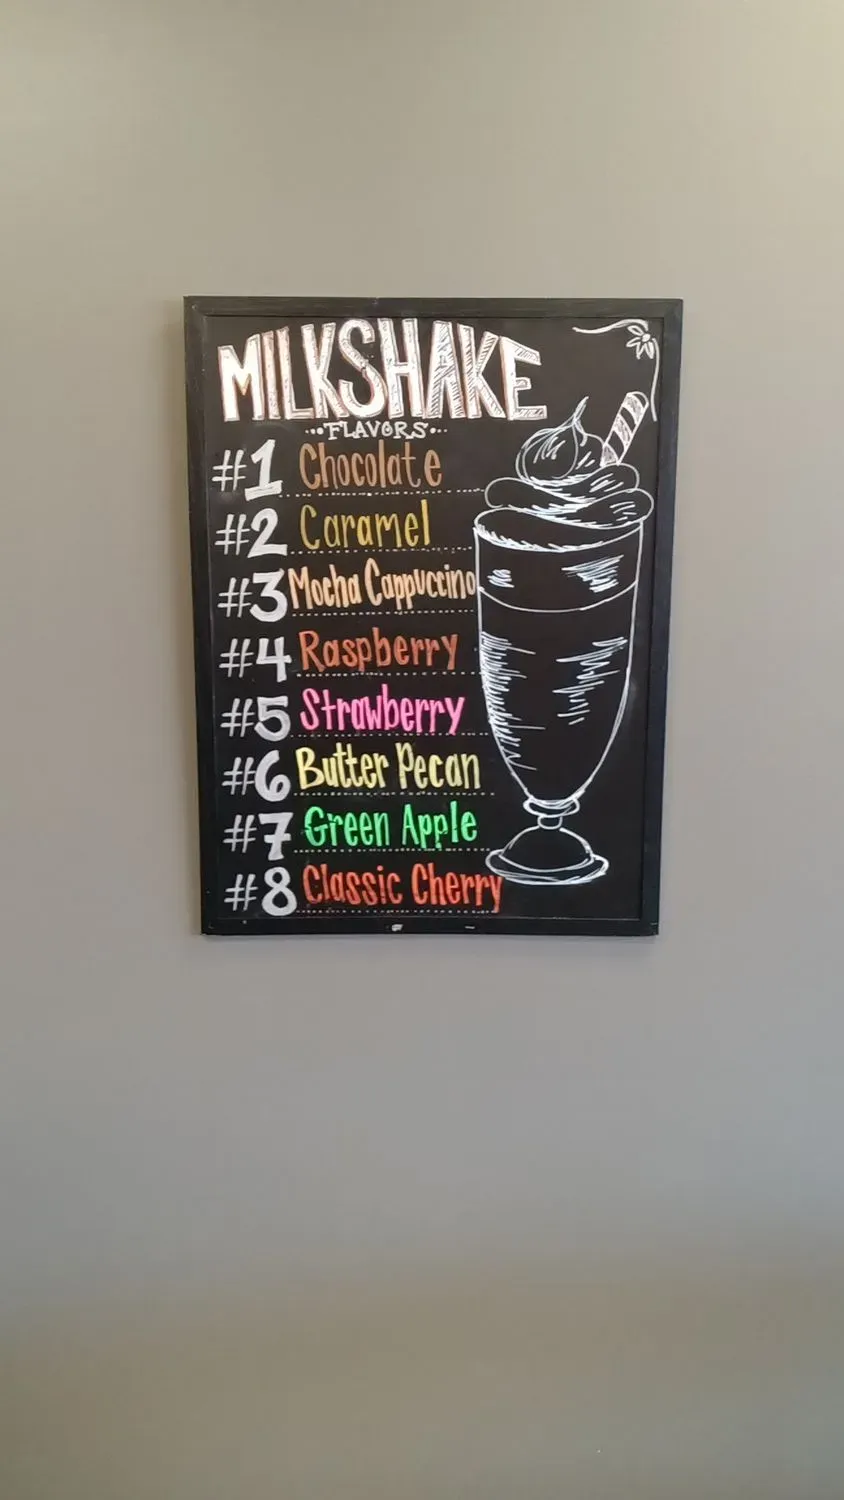 MILKSHAKE
FLAVORS
#1 Chocolate
#2 Caramel
#3 Mocha Cappuccino
#4 Raspberry
#5 Strawberry
#6 Butter Pecan
#7 Green Apple
#8 Classic Cherry